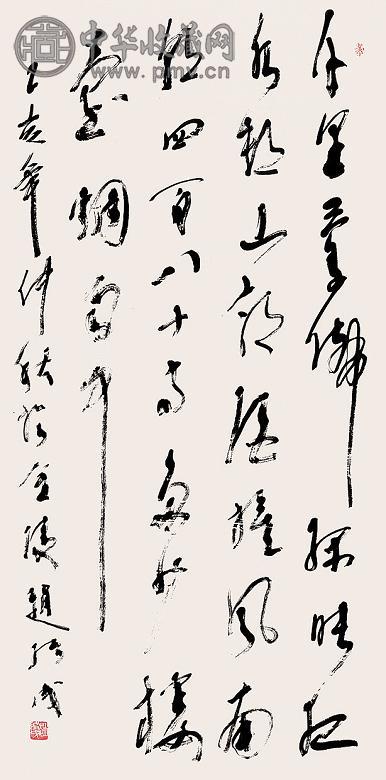 千里莺啼绿映红
水村山郭酒旗风南
朝四百八十寺多少楼
台烟雨中
乙亥年仲秋於金陵赵绪成
中华收藏网
www.pmv.cn